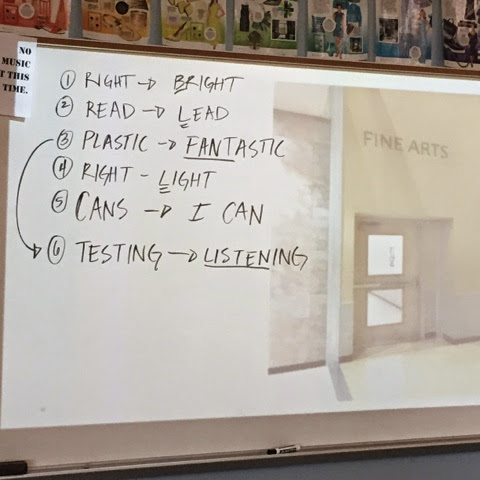 NO
MUSIC
T THIS
TIME.
① RIGHT → BRIGHT
② READ → LEAD
③ PLASTIC → FANTASTIC
④ RIGHT - LIGHT
⑤ CANS → I CAN
⑥ TESTING → LISTENING
FINE ARTS